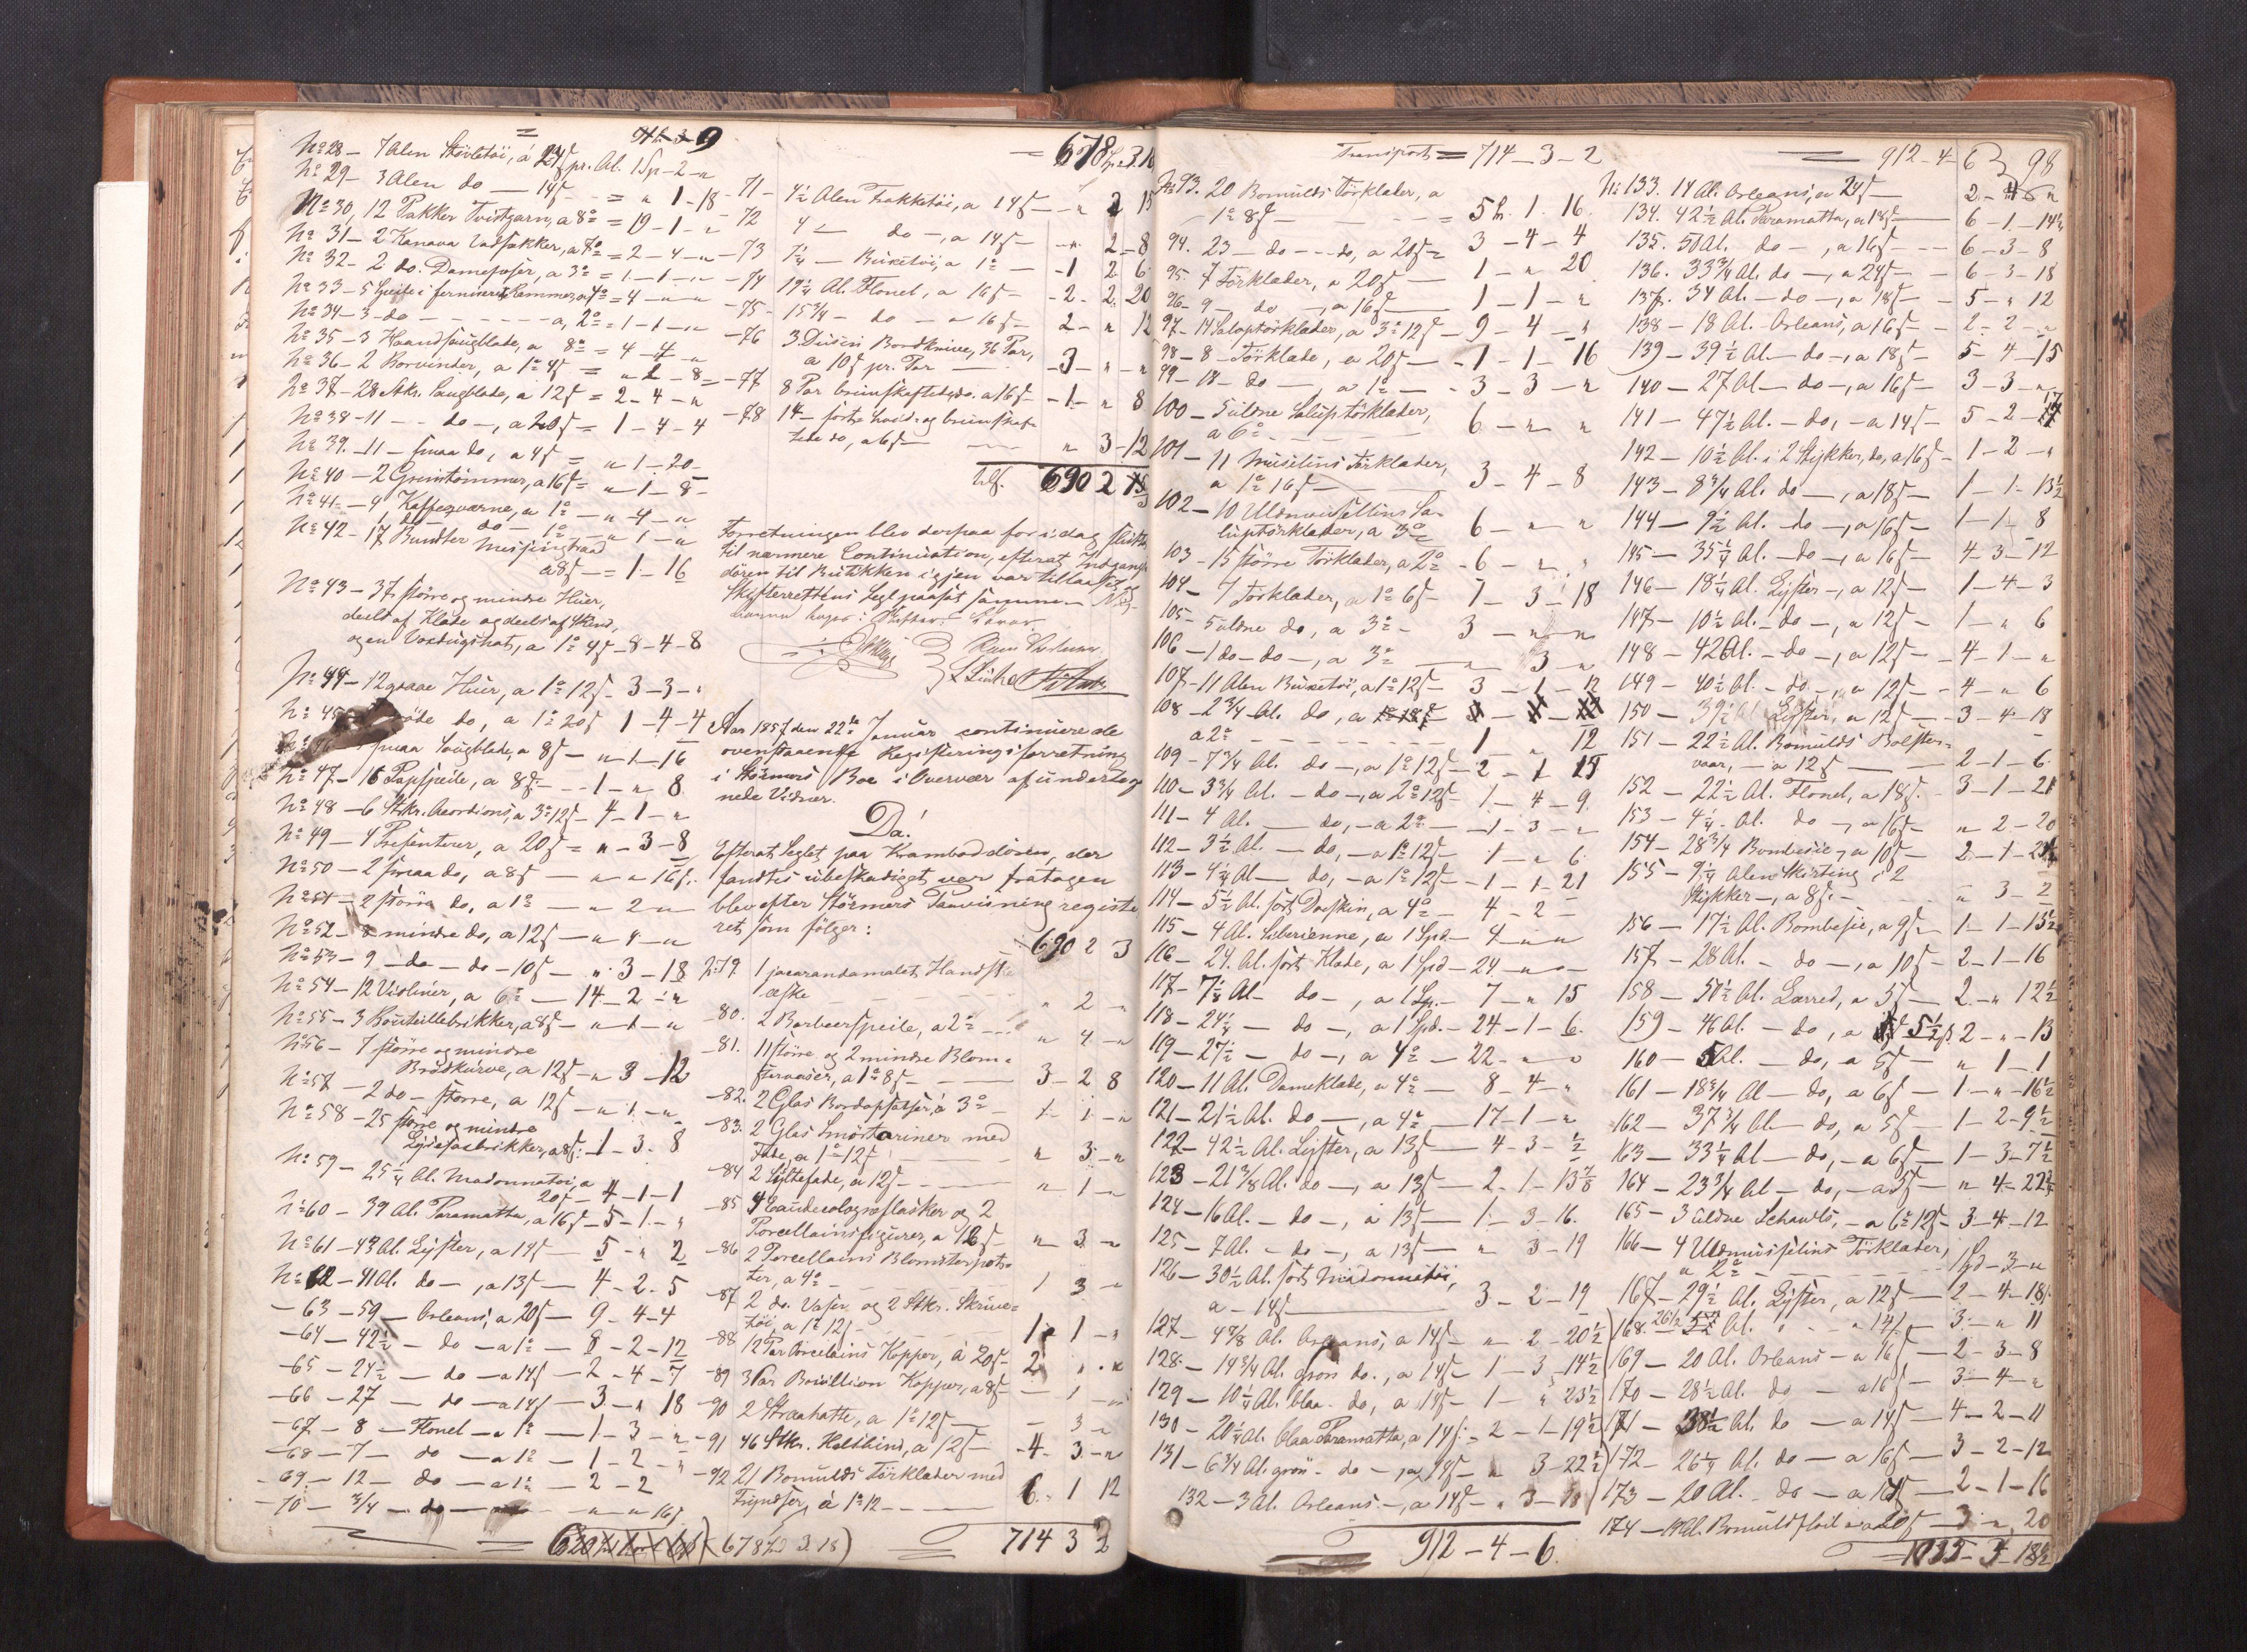 No 28 - 7 Alen Støvletøi, á 24ß pr. Al. 1 Sp - 2 - "
No 29 - 3 Alen do - 14ß - = " 1 - 18
No 30, 12 Pakker Tvistgarn, a 8o = 19 - 1 - "
No 31 - 2 Kanava Vadsækker, a 7o = 2 - 4 - "
No 32 - 2 do. Dameposer, a 3o = 1 - 1 - "
No 33 - 5 Speile i ferniseret Rammer, a 4o = 4 - " - "
No 34 - 3 - do - - - a, 2o = 1 - 1 - "
No 35 - 3 Haandsaugblade, a 8o = 4 - 4 - "
No 36 - 2 Borvinder, a 1o 4ß = " 2 - 8
No 37 - 28 Stkr. Saugblade, a 12ß = 2 - 4 - "
No 38 - 11 - - do -, a 20ß = 1 - 4 - 4
No 39. - 11 - smaa do, a 4ß = " 1 - 20 -
No 40 - 2 Griimtømmer, a 16ß = " 1 - 8 -
No 41 - 4 Kaffeqværne, a 1o - " 4 - "
do - do - 1o - " 1 - "
No 42 - 17 Bundter Messingtraad
a 8ß - = 1 - 16
No 43 - 37 større og mindre Huer,
deels af Klæde og deels af Skind,
og en Voxdugshat, a 1o 4ß - 8 - 4 - 8
No 44 - 12 graae Huer, a 1o 12ß - 3 - 3 - "
No 45 røde do, a 1o 20ß 1 - 4 - 4
smaa Saugblade, a 8ß - " 1 - 16
No 47 - 16 Papspeile, a 8ß - - 1 - " 8
No 48 - 6 Stkr. Acordions, a 3o 12ß - 4 - 1 - "
No 49 - 4 Presenterer, a 20ß = " - 3 - 8
No 50 - 2 smaa do, a 8ß - " " 16ß.
No 51 - 2 større do, a 1o - " 2 "
No 52 - 8 mindre do, a 12ß - " 4 - "
No 53 - 9 - do - do - 10ß - " 3 - 18
No 54 - 12 Violiner, a 6o - 14 - 2 - "
No 55 - 3 Bouteillebrikker, a 8ß - " 1 - "
No 56 - 7 større og mindre
Brødkurve, a 12ß - " 3 - 12
No 57 - 2 do - større, a 12ß - " 1 - "
No 58 - 25 større og mindre
Lysesaxbrikker, a 8ß: - 1 - 3 - 8
No 59 - 25 1/4 Al. Madonnatøi, a
20ß - 4 - 1 - 1
No 60 - 39 Al. Paramatta, a 16ß - 5 - 1 - "
No 61 - 43 Al. Lyster, a 14ß - 5 - " 2
No 62 - 41 Al. do -, a 13ß - 4 - 2 - 5
- 63 - 59 - Orleans, a 20ß - 9 - 4 - 4
- 64 - 42 1/2 - do - a 1o - 8 - 2 - 12
- 65 - 24 1/2 - do - a 14ß - 2 - 4 - 7
- 66 - 27 - do - a 14ß - 3 - " 18
- 67 - 8 - Flonel - a 1o - 1 - 3 - "
- 68 - 7 - do - a 1o - 1 - 2 - "
- 69 - 12 - do - a 1o - 2 - 2
- 70 - 3/4 - do - " " 16ß
678 3. 18)
678 3. 18
- 71 - 4 1/2 Alen Frakketøi, a 14ß - " 2 15
72 4 - do -, a 14ß - - " 2 - 8
- 73 7 1/4 - Buxetøi, a 1o - - 1 2 6
- 74 19 1/4 Al. Flonel, a 16ß - - 2 - 2 20
- 75 - 15 3/4 - do - a 16ß - 2 - " 12
- 76 3 Dusin Bordknive, 36 Par,
a 10ß pr. Par - 3 - " - "
- 77 8 Par bruunskaftede do. a 16ß - 1 - " 8
- 78 14 - sorte hvid- og bruunskaf-
tede do, a 6ß - " 3 - 12
tils. 690 2 3
Forretningen blev derpaa for i dag sluttet
til nærmere Continuation, efterat Indgangs-
døren til Butikken igjen var tillaaset og
Skifterettens Segl paasat samme.
Aar 1857 den 22de Januar continuerede
ovenstaaende Registeringsforretning
i Størmers Boe i Overvær af underteg-
nede Vidner.
Da!
Efterat Seglet paa Krambod døren, der
fandtes ubeskadiget var fratagen
blev efter Størmers Paavisning registe-
ret som følger:
690 2 3
No 79. 1 jacarandamalet Handsk-
æske " 2 - "
- 80. 2 Barbeerspeile, a 2o - " 4 - "
- 81. 11 større og 2 mindre Blom-
stervaser, a 1o 8ß - 3 - 2 8
- 82. 2 Glas Bordopsatser á 3o - 1 - 1 - "
- 83. 2 Glas Smørteriner med
Fade, a 1o 12ß " 3 - "
- 84 2 Syltefade, a 12ß - " 1 - "
- 85 4 Eaudecologneflasker og 2
Porcellainsfigurer, a 12ß - " 3 - "
- 86 2 Porcellains Blomsterpot-
ter, a 4o - 1 3 - "
- 87 2 do. Vaser og 2 Stkr. Skrive-
tøi, a 1o 12ß - 1 1 - "
- 88 12 Par Porcelains Kopper, á 20ß - 2 " . "
- 89 3 Par Bouillion Kopper, a 8ß - 1 - "
- 90 2 Straahatte, a 1o 12ß - - 3 - "
- 91 46 Stkr. Kalskind, a 12ß - 4 - 3 - "
- 92 21 Bomulds Tørklæder med
Fryndser, á 1o 12 - - - 6 - 1 12
714 3 2
Transport = 714 - 3 - 2
No 93. 20 Bomulds Tørklæder, a
1o 8ß - = 5 1. 16.
94. 23 - do - - do, a 20ß = 3 - 4 - 4
95. 7 Tørklæder, a 20ß - 1 - " 20
96 - 9 do -, a 16ß - 1 - 1 - "
97 - 14 Saloptørklæder, a 3o 12ß - 9 - 4 - "
98 - 8 - Tørklæde, a 20ß - 1 - 1 - 16
99 - 18 - do -, a 1o - - 3 3 - "
100 - 5 uldne Saluptørklæder,
a 6o - 6 - " "
101 - 11 Muselins Tørklæder,
a 1o 16ß - 3 - 4 - 8
102 - 10 Uldmusellins Sa-
luptørklæder, a 3o 6 - " "
103 - 15 større Tørklæder, a 2o - 6 - " "
104 - 7 Tørklæder, a 1o 6ß - 1 - 3 - 18
105 - 5 uldne do, a 3o - 3 - " - "
106 - 1 do - do -, a 3o - " 3 - "
107 - 11 Alen Buxetøi, a 1o 12ß - 3 - 1 - 12
108 - 2 3/4 Al. do, a
a 2o - 1 " 12
109 - 7 3/4 Al. do -, a 1o 12ß - 2 - 1 15
110 - 3 3/4 Al. - do -, a 2o 12ß - 1 - 4 - 9
111 - 4 Al. - do, - a 2o - - 1 - 3 - "
112 - 3 1/2 Al. - do, - a 1o 12ß - 1 - " 6.
113 - 4 3/4 Al - do, - a 1o 12ß - 1 - 1 - 21
114 - 5 1/2 Al. sort Doeskin, a 4o - 4 - 2 -
115 - 4 Al. Siberienne, a 1 Spd - 4 - " "
116 - 24. Al. sort Klæde, a 1 Spd - 24 - " -
117 - 7 1/8 Al - do -, a 1 Sp. - 7 - " 15
118 - 24 1/4 - do -, a 1 Spd. - 24 - 1 - 6.
119 - 27 1/2 - do -, a 4o - 22 - " "
120 - 11 Al. Dameklæde, a 4o - 8 - 4 - "
121 - 21 1/2 Al. do -, a 4o - 17 - 1 - "
122 - 42 1/2 Al. Lyster, a 13ß - 4 - 3 - 1/2
123 - 21 3/8 Al. do -, a 13ß - 2 - 1 - 13 7/8
124 - 16 Al. - do -, a 13ß - 1 - 3 - 16.
125 - 7 Al. - do -, a 13ß - " 3 - 19
126 - 30 1/2 Al. sort Madonnetøi,
a - 14ß - 3 - 2 - 19
127 - 4 7/8 Al. Orleans, a 14ß - " 2 - 20 1/2
128. - 14 3/4 Al. grøn do., a 14ß - 1 - 3 - 14 1/2
129 - 10 1/4 Al. blaa - do, a 14ß - 1 - " 23 1/2
130 - 20 1/4 Al. blaa Paramatta, a 14ß - 2 - 1 - 19 1/2
131 - 6 3/4 Al. grøn - do -, a 14ß - " 3 - 22 1/2
132 - 3 Al. Orleans -, a 14ß - " 3 - 18
912 - 4 - 6.
912 - 4 - 6
98
No 133. 14 Al. Orleans, a 24ß - 2 -
134. 42 1/2 Al. Paramatta, a 18ß - 6 - 1 - 14 1/2
135. 50 Al. do -, a 16ß - - 6 - 3 - 8
136. 33 3/4 Al. do -, a 24ß - - 6 - 3 - 18
137. 34 Al. - do -, a 18ß - - 5 - " 12
138 - 18 Al. - Orleans, a 16ß - - 2 - 2 - "
139 - 39 1/2 Al. - do -, a 18ß - 5 - 4 - 15
140 - 27 Al - do -, a 16ß - 3 - 3 - "
141 - 47 1/2 Al. - do, - a 14ß - 5 - 2 - 17
142 - 10 1/2 Al. i 2 Stykker, do, a 16ß - 1 - 2 - "
143 - 8 3/4 Al. do -, a 18ß - 1 - 1 - 13 1/2
144 - 9 1/2 Al. - do -, a 16ß - 1 - 1 - 8
145 - 35 1/4 Al. - do -, a 16ß - 4 - 3 - 12
146 - 18 1/4 Al. Lyster -, a 12ß - 1 - 4 - 3
147 - 10 1/2 Al. - do -, a 12ß - 1 - " 6
148 - 42 Al. - do -, a 12ß - - 4 - 1 - "
149 - 40 1/2 Al. - do. -, a 12ß - - 4 - " 6
150 - 39 1/2 Al Lyster, a 12ß - - 3 - 4 - 18
151 - 22 1/2 Al. Bomulds Bolster-
vaar, - a 12ß - 2 - 1 - 6.
152 - 22 1/2 Al. Flonel, a 18ß. - 3 - 1 - 21
153 - 4 1/4 - Al. do -, a 16ß - " 2 - 20
154 - 28 3/4 Bombesie, a 10ß - 2 - 1 -
155 - 9 1/4 Alen Skirting i 2
Stykker -, a 8ß. - " 3 - 2
156 - 17 1/2 Al. Bombesie, a 9ß - 1 - 1 - 13 1/2
157 - 28 Al. - do -, a 10ß - 2 - 1 - 16
158 - 50 1/2 Al. Lærred, a 5ß - 2 - " 12 1/2
159 - 46 Al. - do, a 5 1/2ß 2 - " - 13
160 - 5 Al. - do, a 5ß - " 1 - 1
161 - 18 3/4 Al - do, a 6ß - 1 - " - 16 1/2
162 - 37 3/4 Al - do, a 5ß - 1 - 2 - 9 1/2
163 - 33 1/4 Al - do, - a 6ß - 1 - 3 - 7 1/2
164 - 23 3/4 Al - do, - a 5ß - " 4 - 22 3/4
165 - 3 uldne Schawls, - a 6o 12ß - 3 - 4 - 12
166 - 4 Uldmusselins Tørklæder,
a 2o - 1 Spd - 3 - "
167 - 29 1/2 Al. Lyster, a 12ß - 2 - 4 - 18
168. - 26 1/2 Al. " - a 14ß - 3 - " 11
169 - 20 Al. Orleans - a 16ß - 2 - 3 - 8
170 - 28 1/2 Al. do - a 16ß - 3 - 4 - "
171 - 38 1/2 Al. do - a 14ß - 4 - 2 - 11
172 - 26 1/4 Al. do - a 16ß - 3 - 2 - 12
173 - 20 Al. - do - a 14ß - 2 - 1 - 16
174 - Al. Bomuldsfløil - a 20ß - 3 - " 20